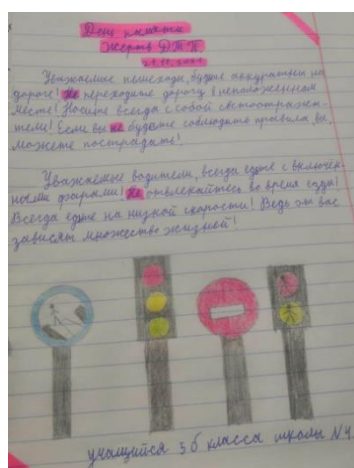 День памяти
жертв ДТП
Уважаемые пешеходы, будьте аккуратнее на
дороге! Не переходите дорогу в неположенном
месте! Носите всегда с собой светоотражат-
тели! Если вы не будете соблюдать правила вы
можете пострадать!
Уважаемые водители, всегда едьте с включён-
ными фарами! Не отвлекайтесь во время езды!
Всегда едьте на низкой скорости! Ведь от вас
зависят множество жизней!
учащийся 5б класса школы №4